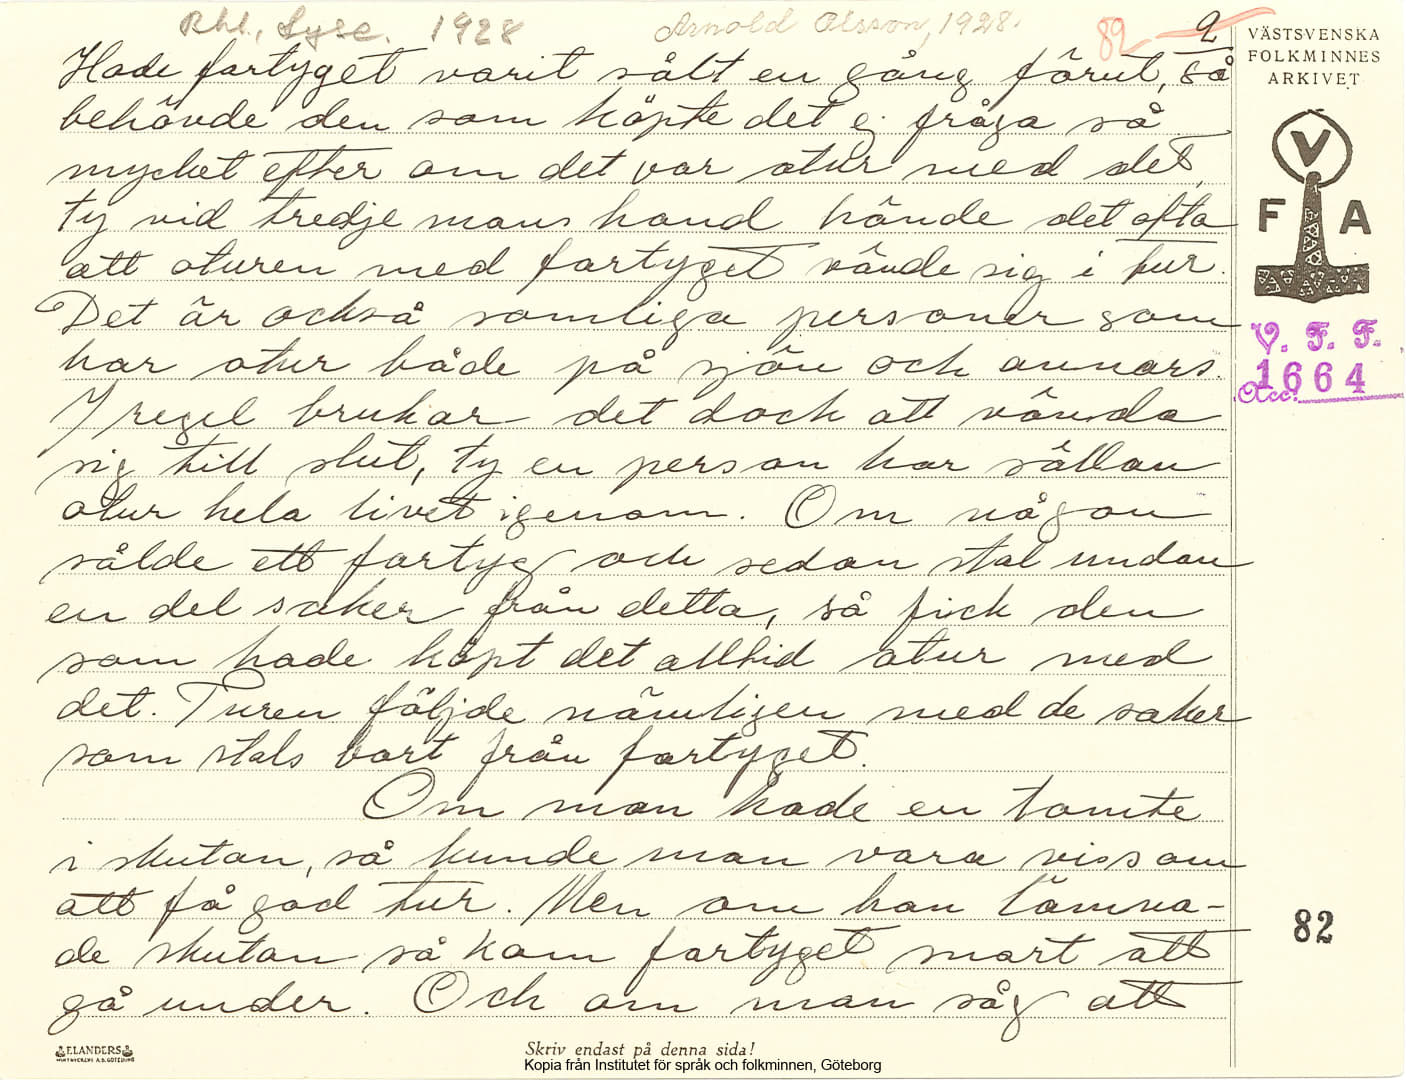 Bhl., Lyse. 1928 Arnold Olsson, 1928.
82
2
VÄSTSVENSKA
FOLKMINNES
ARKIVET
Hade fartyget varit sålt en gång förut, så
behövde den som köpte det ej fråga så
mycket efter om det var otur med det,
ty vid tredje mans hand hände det ofta
att oturen med fartyget vände sig i tur.
Det är också somliga personer som
har otur både på sjön och annars.
I regel brukar det dock att vända
sig till slut, ty en person har sällan
otur hela livet igenom. Om någon
sålde ett fartyg och sedan stal undan
en del saker från detta, så fick den
som hade köpt det alltid otur med
det. Turen följde nämligen med de saker
som stals bort från fartyget.
Om man hade en tomte
i skutan, så kunde man vara viss om
att få god tur. Men om han lämna-
de skutan så kom fartyget snart att
gå under. Och om man såg att
V
F A
V. F. F.
1664
Acc.
82
ELANDERS
Skriv endast på denna sida!
Kopia från Institutet för språk och folkminnen, Göteborg